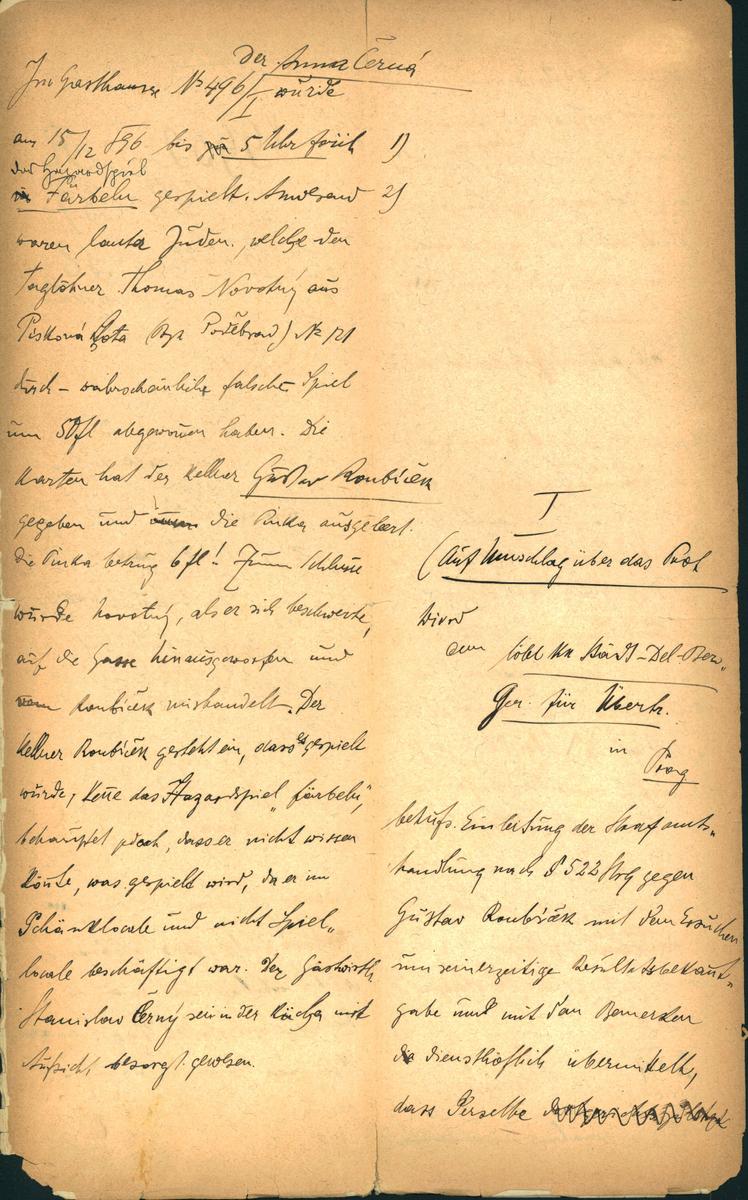 Der Anna Černá
Im Gasthause No 496/I wurde
am 15/12 896 bis 5 Uhr früh
das Hazardspiel
Färbeln gespielt. Anwesend
waren lauter Juden, welche den
Taglöhner Thomas Novotný aus
Písková Lhota (Bzk Poděbrad) No 121
durch – wahrscheinlich falsches Spiel
um 50 fl abgewonnen haben. Die
Karten hat der Kellner Gustav Roubíček
gegeben und die Pinka ausgeleert.
die Pinka betrug 6 fl! Zum Schlusse
wurde Novotný, als er sich beschwerte,
auf die Gasse hinausgeworfen und
vom Roubíček mishandelt. Der
Kellner Roubíček gesteht ein, dass es gespielt
wurde, kenne das Hazardspiel „färbeln",
behauptet jedoch, dass er nicht wissen
konnte, was gespielt wird, da er im
Schänklocale und nicht Spiel„
locale beschäftigt war. Der Gastwirth
Stanislav Černý sei in der Küche mit
Aufsicht besorgt gewesen.
1)
2)
I
(Auf Umschlag über das Prot
Wird
dem löbl kk Städt-Del-Bez„
Ger. für Übertr.
in
Prag
behufs Einleitung der Strafamts„
handlung nach § 522 Strg gegen
Gustav Roubíček mit dem Ersuchen
um seinerzeitige Resultatsbekannt„
gabe und mit dem Bemerken
diensthöflich übermittelt,
dass Derselbe